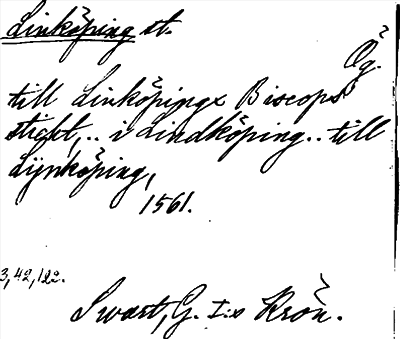 Linköping st.
Ög.
till Linköpingx Biscops
stickt,.. i Lindköping.. till
Lijnköping,
1561.
3,42,122.
Swart, G. I:s Krön.